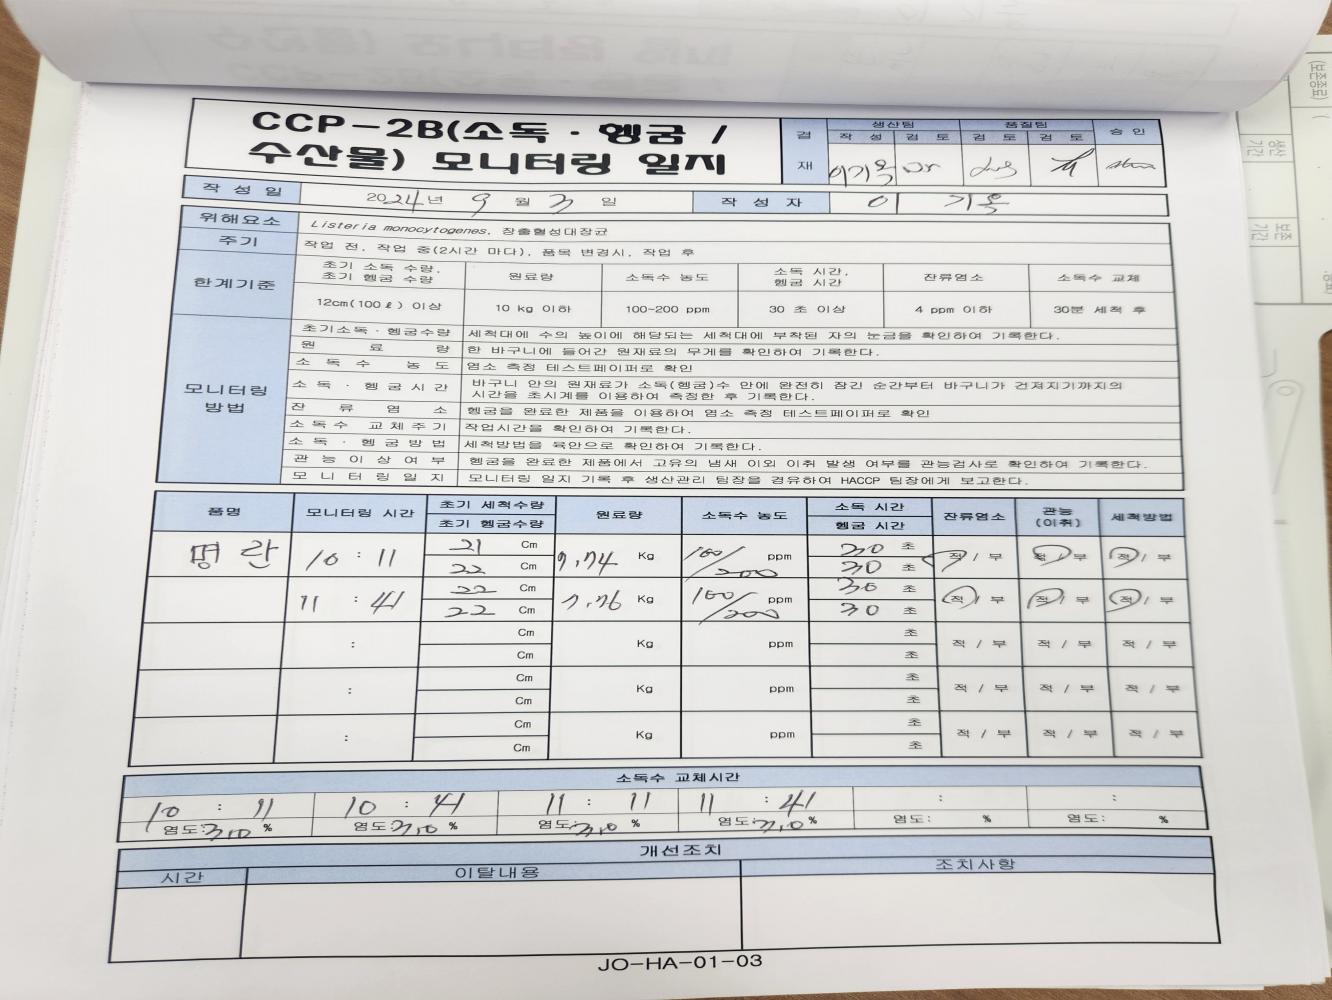 CCP-2B(소독 · 헹굼 /
수산물) 모니터링 일지
결 재
생산팀 품질팀 승 인
작 성 검 토 검 토 검 토
이기옥
작 성 일 2024년 9 월 3 일 작 성 자 이 기옥
위해요소 Listeria monocytogenes, 장출혈성대장균
주기 작업 전, 작업 중(2시간 마다), 품목 변경시, 작업 후
한계기준
초기 소독 수량, 초기 헹굼 수량 원료량 소독수 농도 소독 시간, 헹굼 시간 잔류염소 소독수 교체
12cm(100ℓ) 이상 10 kg 이하 100-200 ppm 30 초 이상 4 ppm 이하 30분 세척 후
모니터링 방법
초기소독 · 헹굼수량 세척대에 수의 높이에 해당되는 세척대에 부착된 자의 눈금을 확인하여 기록한다.
원 료 량 한 바구니에 들어간 원재료의 무게를 확인하여 기록한다.
소 독 수 농 도 염소 측정 테스트페이퍼로 확인
소 독 · 헹 굼 시 간 바구니 안의 원재료가 소독(헹굼)수 안에 완전히 잠긴 순간부터 바구니가 건져지기까지의
시간을 초시계를 이용하여 측정한 후 기록한다.
잔 류 염 소 헹굼을 완료한 제품을 이용하여 염소 측정 테스트페이퍼로 확인
소독수 교체주기 작업시간을 확인하여 기록한다.
소 독 · 헹 굼 방 법 세척방법을 육안으로 확인하여 기록한다.
관 능 이 상 여 부 헹굼을 완료한 제품에서 고유의 냄새 이외 이취 발생 여부를 관능검사로 확인하여 기록한다.
모 니 터 링 일 지 모니터링 일지 기록 후 생산관리 팀장을 경유하여 HACCP 팀장에게 보고한다.
품명 모니터링 시간 초기 세척수량 원료량 소독수 농도 소독 시간 잔류염소 관능 (이취) 세척방법
초기 헹굼수량 헹굼 시간
명란 10 : 11 21 Cm 9.74 Kg 100/200 ppm 30 초 적 / 부 적 / 부 적 / 부
22 Cm 30 초
11 : 41 22 Cm Kg 100/200 ppm 30 초 적 / 부 적 / 부 적 / 부
22 Cm 30 초
: Cm Kg ppm 초 적 / 부 적 / 부 적 / 부
Cm 초
: Cm Kg ppm 초 적 / 부 적 / 부 적 / 부
Cm 초
: Cm Kg ppm 초 적 / 부 적 / 부 적 / 부
Cm 초
소독수 교체시간
10 : 11 10 : 41 11 : 11 11 : 41 : :
염도: 3.0 % 염도: 3.0 % 염도: 3.0 % 염도: 3.0 % 염도: % 염도: %
개선조치
시간 이탈내용 조치사항
JO-HA-01-03